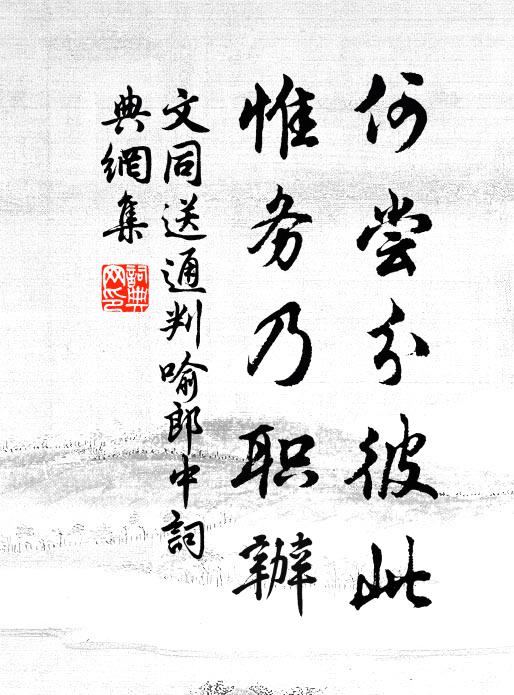 何尝分彼此
惟务乃职辦
文同送通判喻郎中詞
典網集
詞典
网印